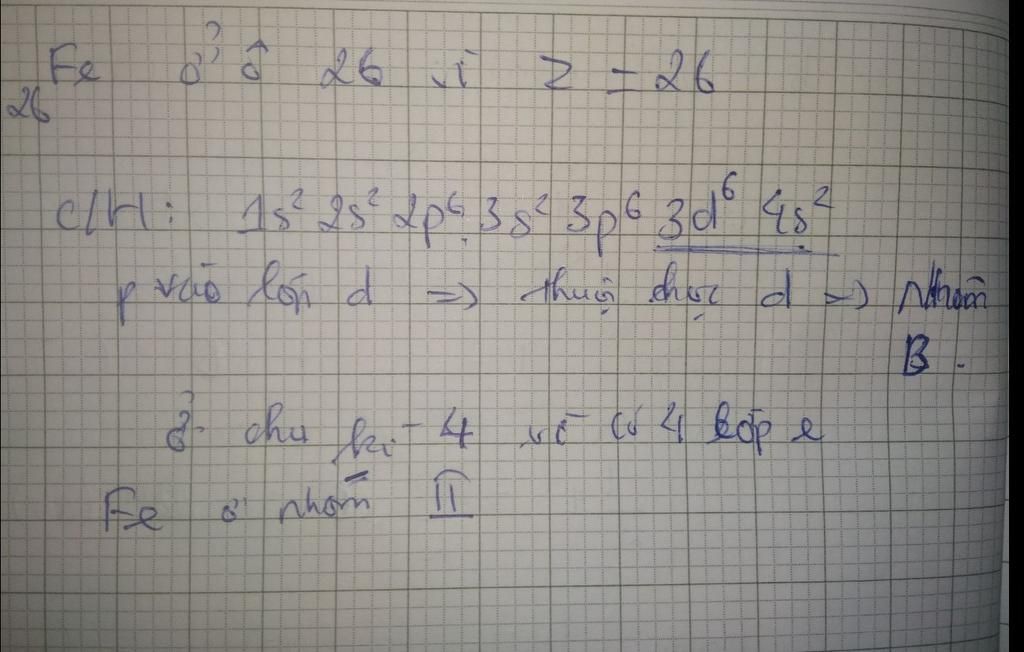 Fe ở ô 26 vì Z = 26
26
C/H: 1s² 2s² 2p⁶ 3s² 3p⁶ 3d⁶ 4s²
p vào lớp d => thuộc d => Nhóm
B.
ở chu kì 4 vì có 4 lớp e
Fe ở nhóm II